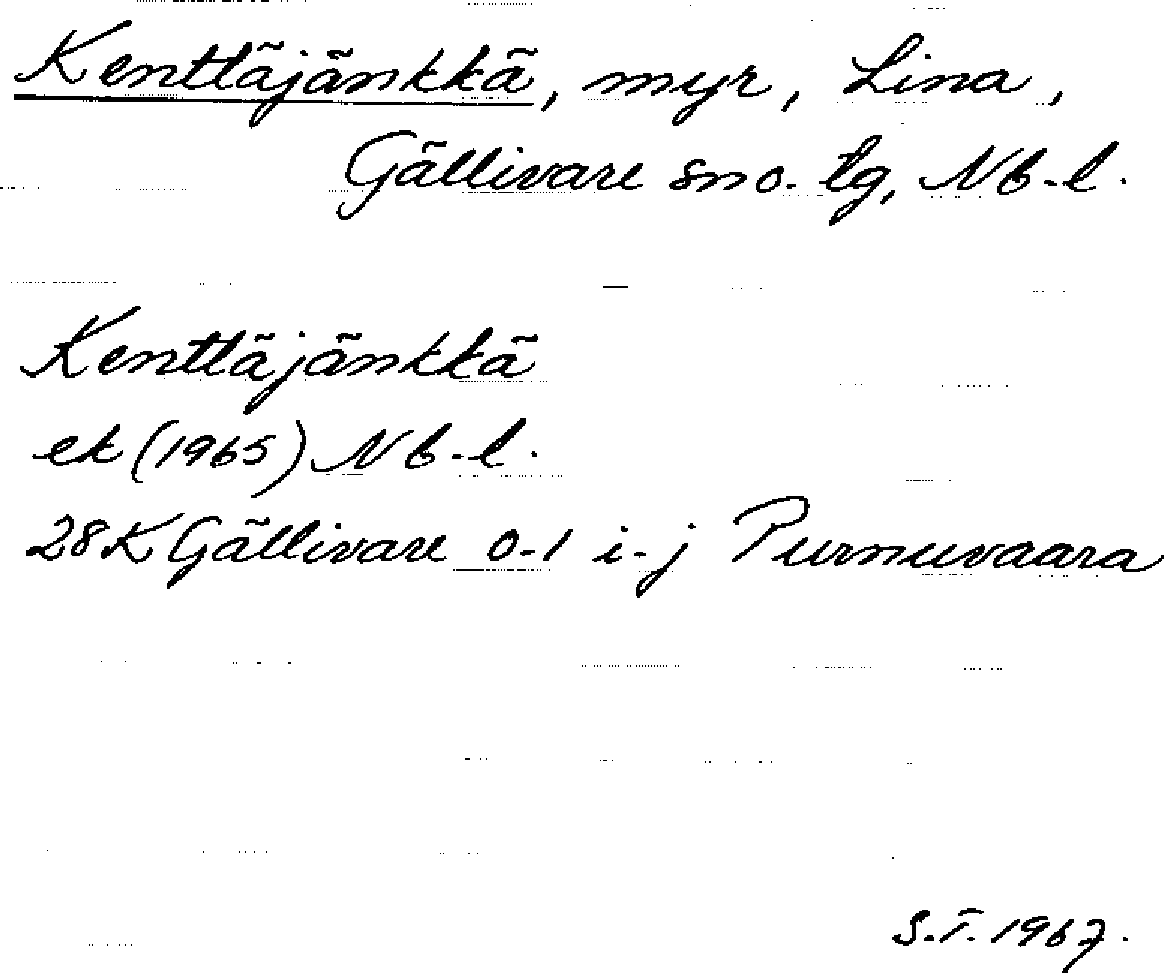 Kenttäjänkkä, myr, Lina,
Gällivare sno. tg, Nb-l.
Kenttäjänkkä
ek (1965) Nb-l.
28K Gällivare 0-1 i-j Purnuvaara
S.T. 1967.